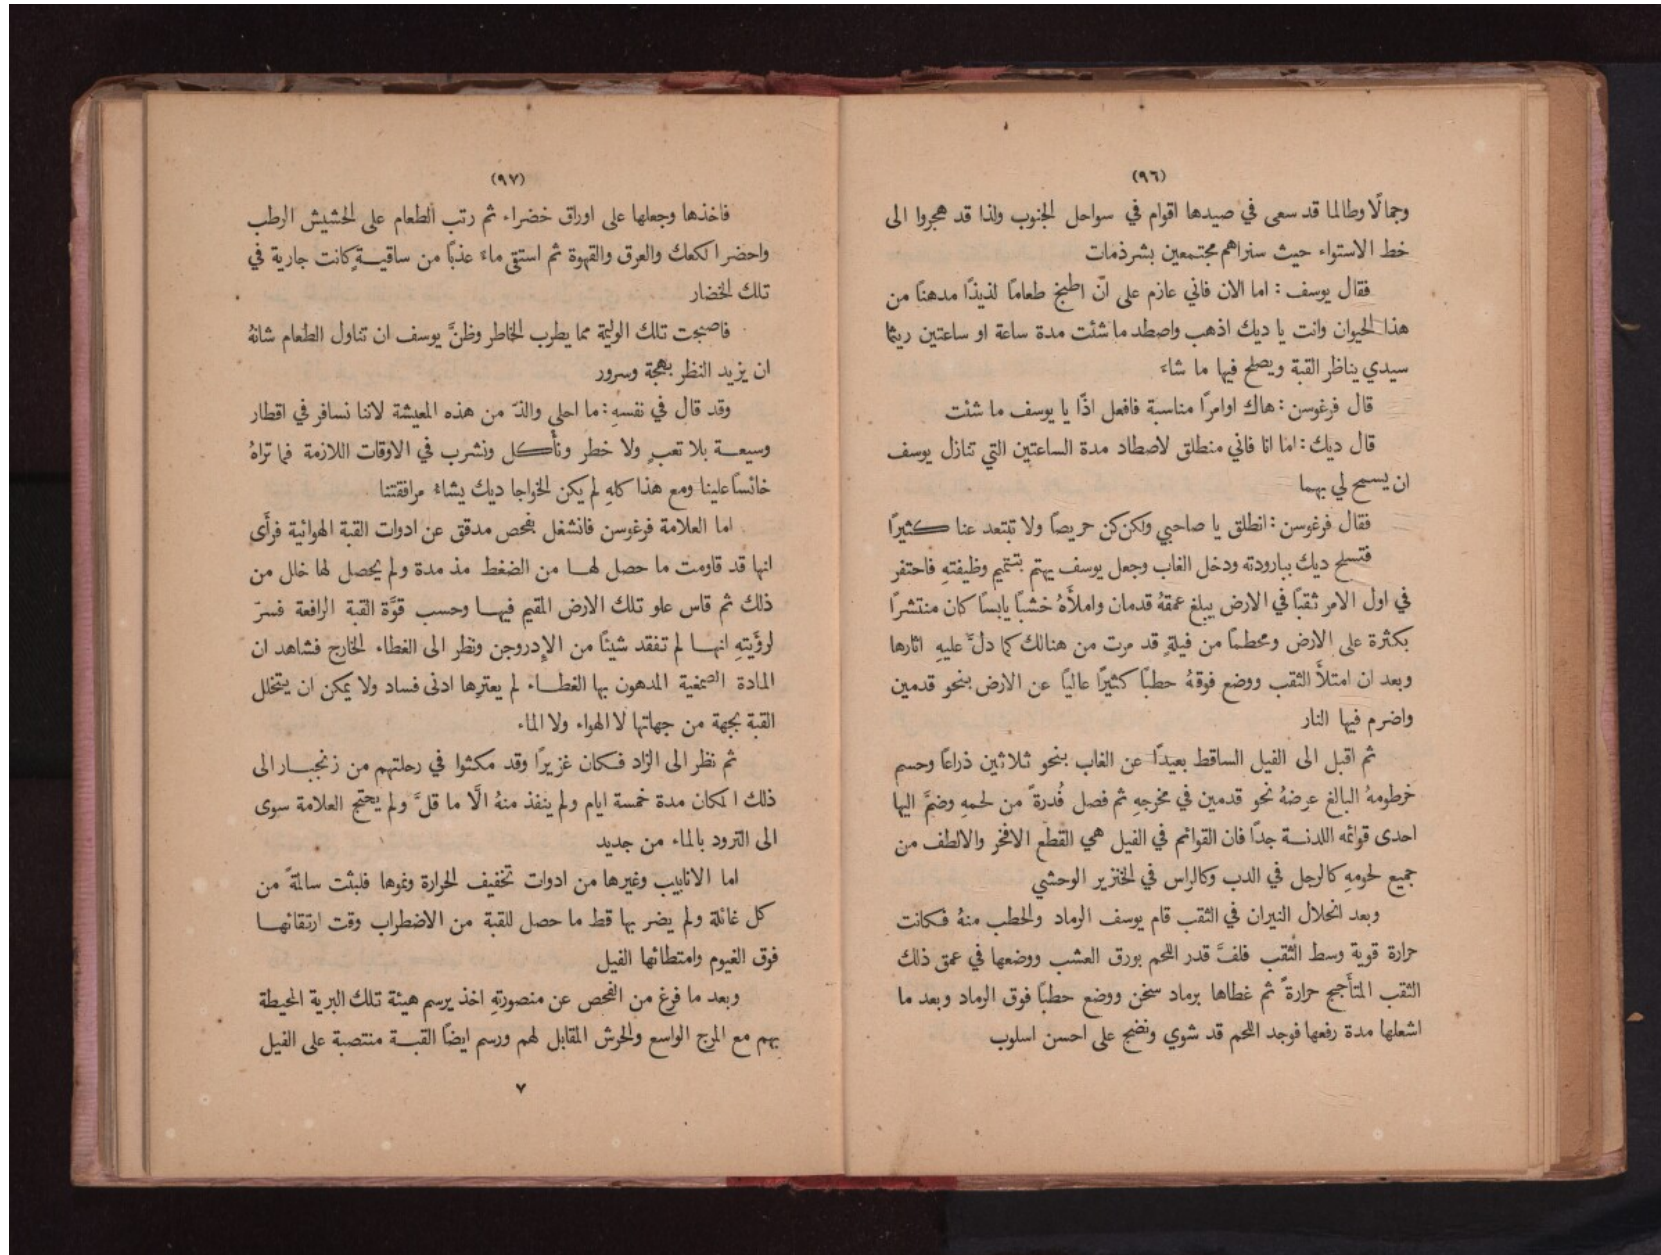 (٩٦)
وجمالًا وطالما قد سعى في صيدها اقوام في سواحل الجنوب ولذا قد هجروا الى
خط الاستواء حيث سنراهم مجتمعين بشرذمات
فقال يوسف : اما الان فاني عازم على انّ اطبخ طعامًا لذيذًا مدهنًا من
هذا الحيوان وانت يا ديك اذهب واصطد ما شئت مدة ساعة او ساعتين ريثما
سيدي يناظر القبة ويصلح فيها ما شاء
قال فرغوسن : هاك اوامرًا مناسبة فافعل اذًا يا يوسف ما شئت
قال ديك : اما انا فاني منطلق لاصطاد مدة الساعتين التي تنازل يوسف
ان يسمح لي بهما
فقال فرغوسن : انطلق يا صاحبي ولكن كن حريصًا ولا تبتعد عنا كثيرًا
فتسلح ديك ببارودته ودخل الغاب وجعل يوسف يهتم بتتميم وظيفتهِ فاحتفر
في اول الامر ثقبًا في الارض يبلغ عمقهُ قدمان واملأَهُ خشبًا يابسًا كان منتشرًا
بكثرة على الارض ومحطمًا من فيلةٍ قد مرت من هنالك كما دلَّ عليهِ اثارها
وبعد ان امتلأَ الثقب ووضع فوقهُ حطبًا كثيرًا عاليًا عن الارض بنحو قدمين
واضرم فيها النار
ثم اقبل الى الفيل الساقط بعيدًا عن الغاب بنحو ثلاثين ذراعًا وحسم
خرطومهُ البالغ عرضهُ نحو قدمين في مخرجهِ ثم فصل فُدرةً من لحمهِ وضمَّ اليها
احدى قوائمه اللدنة جدًا فان القوائم في الفيل هي القطع الافخر والالطف من
جميع لحومهِ كالرجل في الدب وكالراس في الخنزير الوحشي
وبعد انحلال النيران في الثقب قام يوسف الرماد والحطب منهُ فكانت
حرارة قوية وسط الثقب فلفَّ قدر اللحم بورق العشب ووضعها في عمق ذلك
الثقب المتأَجج حرارةً ثم غطاها برماد سخن ووضع حطبًا فوق الرماد وبعد ما
اشعلها مدة رفعها فوجد اللحم قد شوي ونضج على احسن اسلوب
(٩٧)
فاخذها وجعلها على اوراق خضراء ثم رتب الطعام على الحشيش الرطب
واحضر الكعك والعرق والقهوة ثم استقى ماءً عذبًا من ساقيةٍ كانت جارية في
تلك الخضار
فاصبحت تلك الوليمة مما يطرب الخاطر وظنَّ يوسف ان تناول الطعام شانهُ
ان يزيد النظر بهجة وسرور
وقد قال في نفسهِ : ما احلى والذّ من هذه المعيشة لاننا نسافر في اقطار
وسيعة بلا تعبٍ ولا خطر ونأكل ونشرب في الاوقات اللازمة فما تراهُ
خائسًا علينا ومع هذا كلهِ لم يكن الخواجا ديك يشاءُ مرافقتنا
اما العلامة فرغوسن فانشغل بفحص مدقق عن ادوات القبة الهوائية فرأَى
انها قد قاومت ما حصل لها من الضغط مذ مدة ولم يحصل لها خلل من
ذلك ثم قاس علو تلك الارض المقيم فيها وحسب قوَّة القبة الرافعة فسرّ
لرؤَيتهِ انها لم تفقد شيئًا من الإدروجن ونظر الى الغطاء الخارج فشاهد ان
المادة الصمغية المدهون بها الغطاء لم يعترِها ادنى فساد ولا يمكن ان يتخلل
القبة بجهة من جهاتها لا الهواء ولا الماء
ثم نظر الى الزاد فكان غزيرًا وقد مكثوا في رحلتهم من زنجبار الى
ذلك المكان مدة خمسة ايام ولم ينفذ منهُ الَّا ما قلَّ ولم يحتج العلامة سوى
الى التزود بالماء من جديد
اما الانابيب وغيرها من ادوات تخفيف الحرارة ونموها فلبثت سالمةً من
كل غائلة ولم يضر بها قط ما حصل للقبة من الاضطراب وقت ارتقائها
فوق الغيوم وامتطائها الفيل
وبعد ما فرغ من الفحص عن منصورتهِ اخذ يرسم هيئة تلك البرية المحيطة
بهم مع المرج الواسع والحرش المقابل لهم ورسم ايضًا القبة منتصبة على الفيل
٧